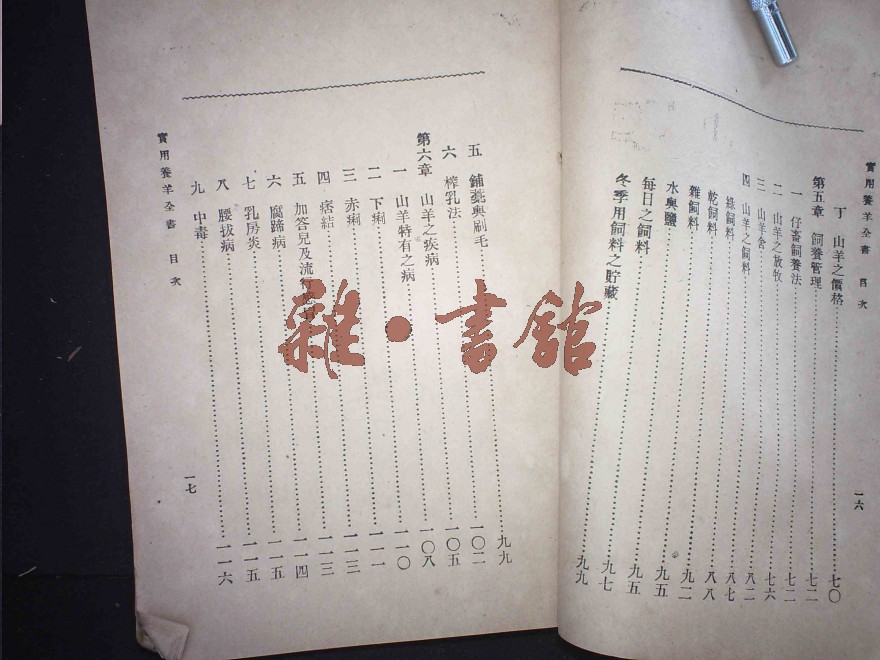 實用養羊全書 目次 一六
丁 山羊之價格……七〇
第五章 飼養管理……七二
一 仔畜飼養法……七二
二 山羊之放牧……七六
三 山羊舍……八二
四 山羊之飼料……八七
綠飼料……八八
乾飼料……九二
雜飼料……九五
水與鹽……九五
每日之飼料……九七
冬季用飼料之貯藏……九九
五 鋪藁與刷毛……九九
六 榨乳法……一〇二
第六章 山羊之疾病……一〇五
一 山羊特有之病……一〇八
二 下痢……一一〇
三 赤痢……一一一
四 痞結……一一三
五 加答兒及流行……一一三
六 腐蹄病……一一四
七 乳房炎……一一五
八 腰拔病……一一五
九 中毒……一一六
實用養羊全書 目次 一七
雜·書館